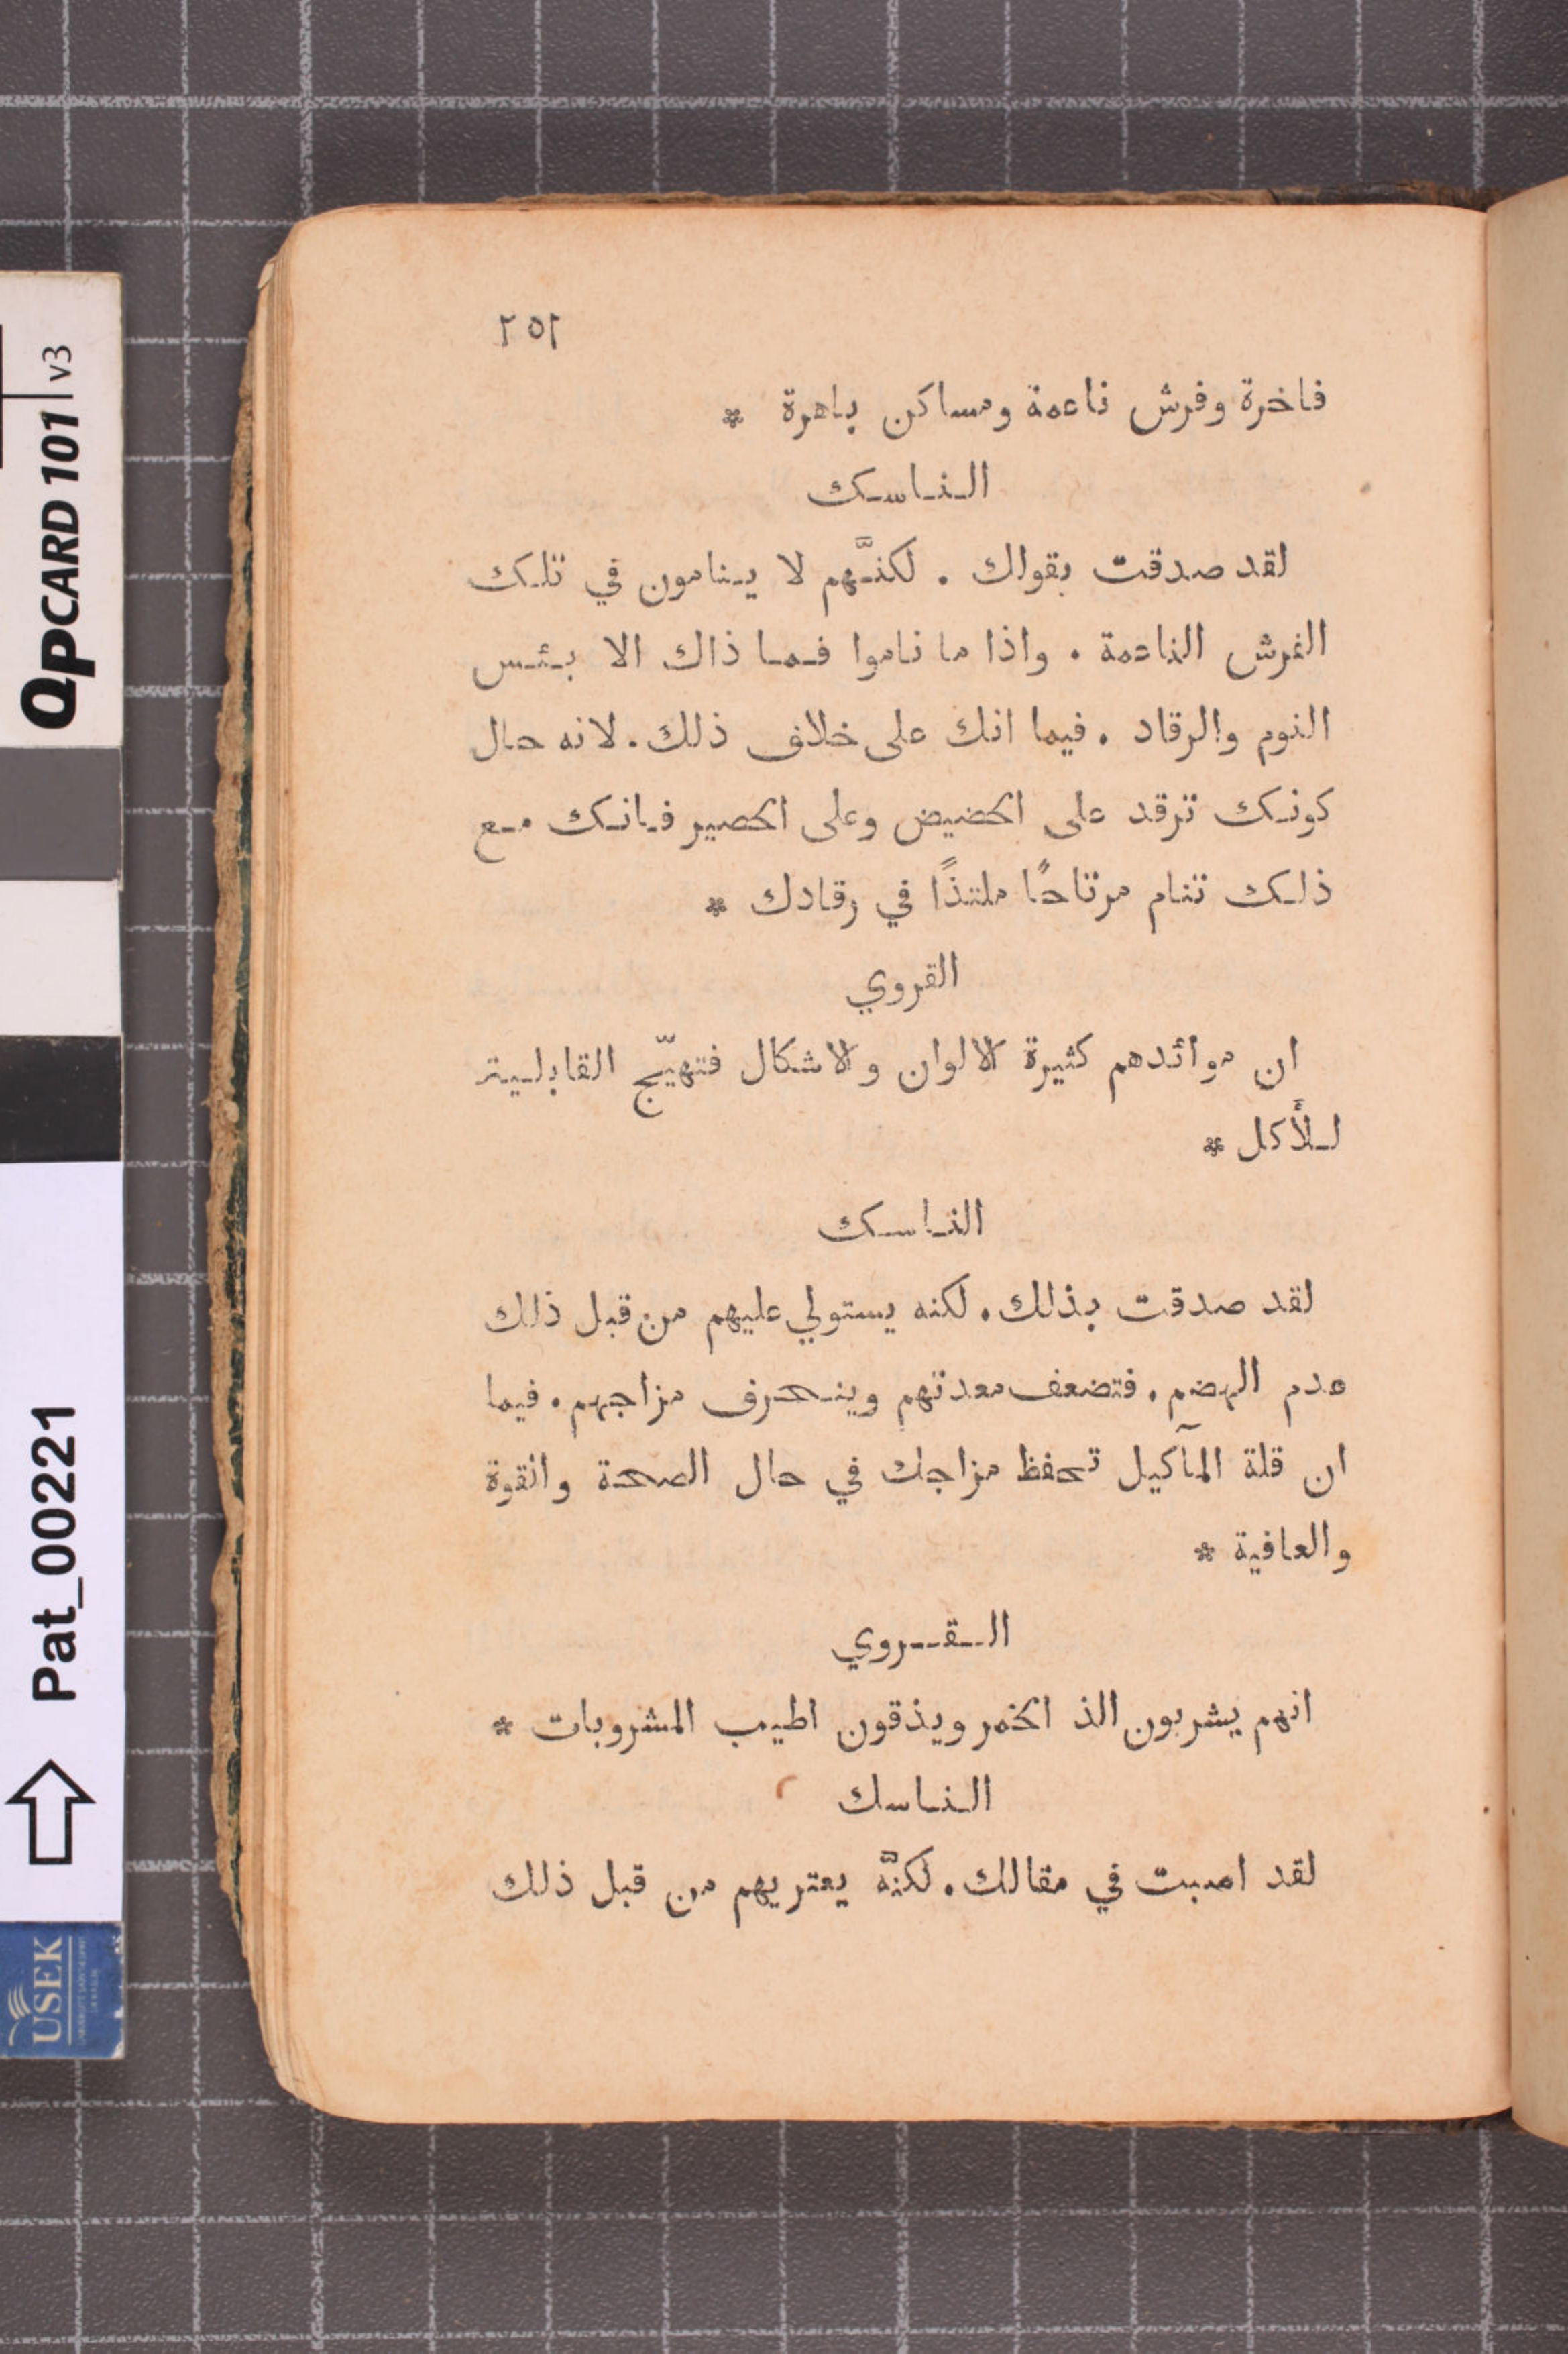 ٢٥٢
فاخرة وفرش ناعمة ومساكن باهرة *
الناسك
لقد صدقت بقولك . لكنَّهم لا ينامون في تلك
الفرش الناعمة . واذا ما ناموا فما ذاك الا بئس
النوم والرقاد . فيما انك على خلاف ذلك . لانه حال
كونك ترقد على الحضيض وعلى الحصير فانك مع
ذلك تنام مرتاحًا ملتذًا في رقادك *
القروي
ان موائدهم كثيرة الالوان والاشكال فتهيّج القابلية
للأكل *
الناسك
لقد صدقت بذلك . لكنه يستولي عليهم من قبل ذلك
عدم الهضم . فتضعف معدتهم وينحرف مزاجهم . فيما
ان قلة المآكيل تحفظ مزاجك في حال الصحة وانقوة
والعافية *
القروي
انهم يشربون الذ الخمر ويذقون اطيب المشروبات *
الناسك
لقد اصبت في مقالك . لكنَّه يعتريهم من قبل ذلك
QPCARD 101 v3
Pat_00221
USEK